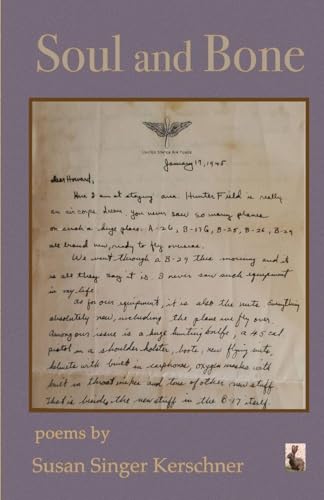 Soul and Bone
UNITED STATES AIR FORCE
January 17, 1945
Dear Howard,
Here I am at staging area. Hunter Field is really
an air corps dream. You never saw so many planes
on such a huge place. A-26, B-17G, B-25, B-26, B-29
all brand new, ready to fly overseas.
We went through a B-29 this morning and it
is all they say it is. I never saw such equipment
in my life.
As for our equipment, it is also the nuts. Everything
absolutely new, including the plane we fly over.
Among our issue is a huge hunting knife, a .45 cal
pistol in a shoulder holster, boots, new flying suits,
helmets with built in earphones, oxygen masks with
built in throat mikes and tons of other new stuff.
That is besides the new stuff in the B-17 itself.
poems by
Susan Singer Kerschner